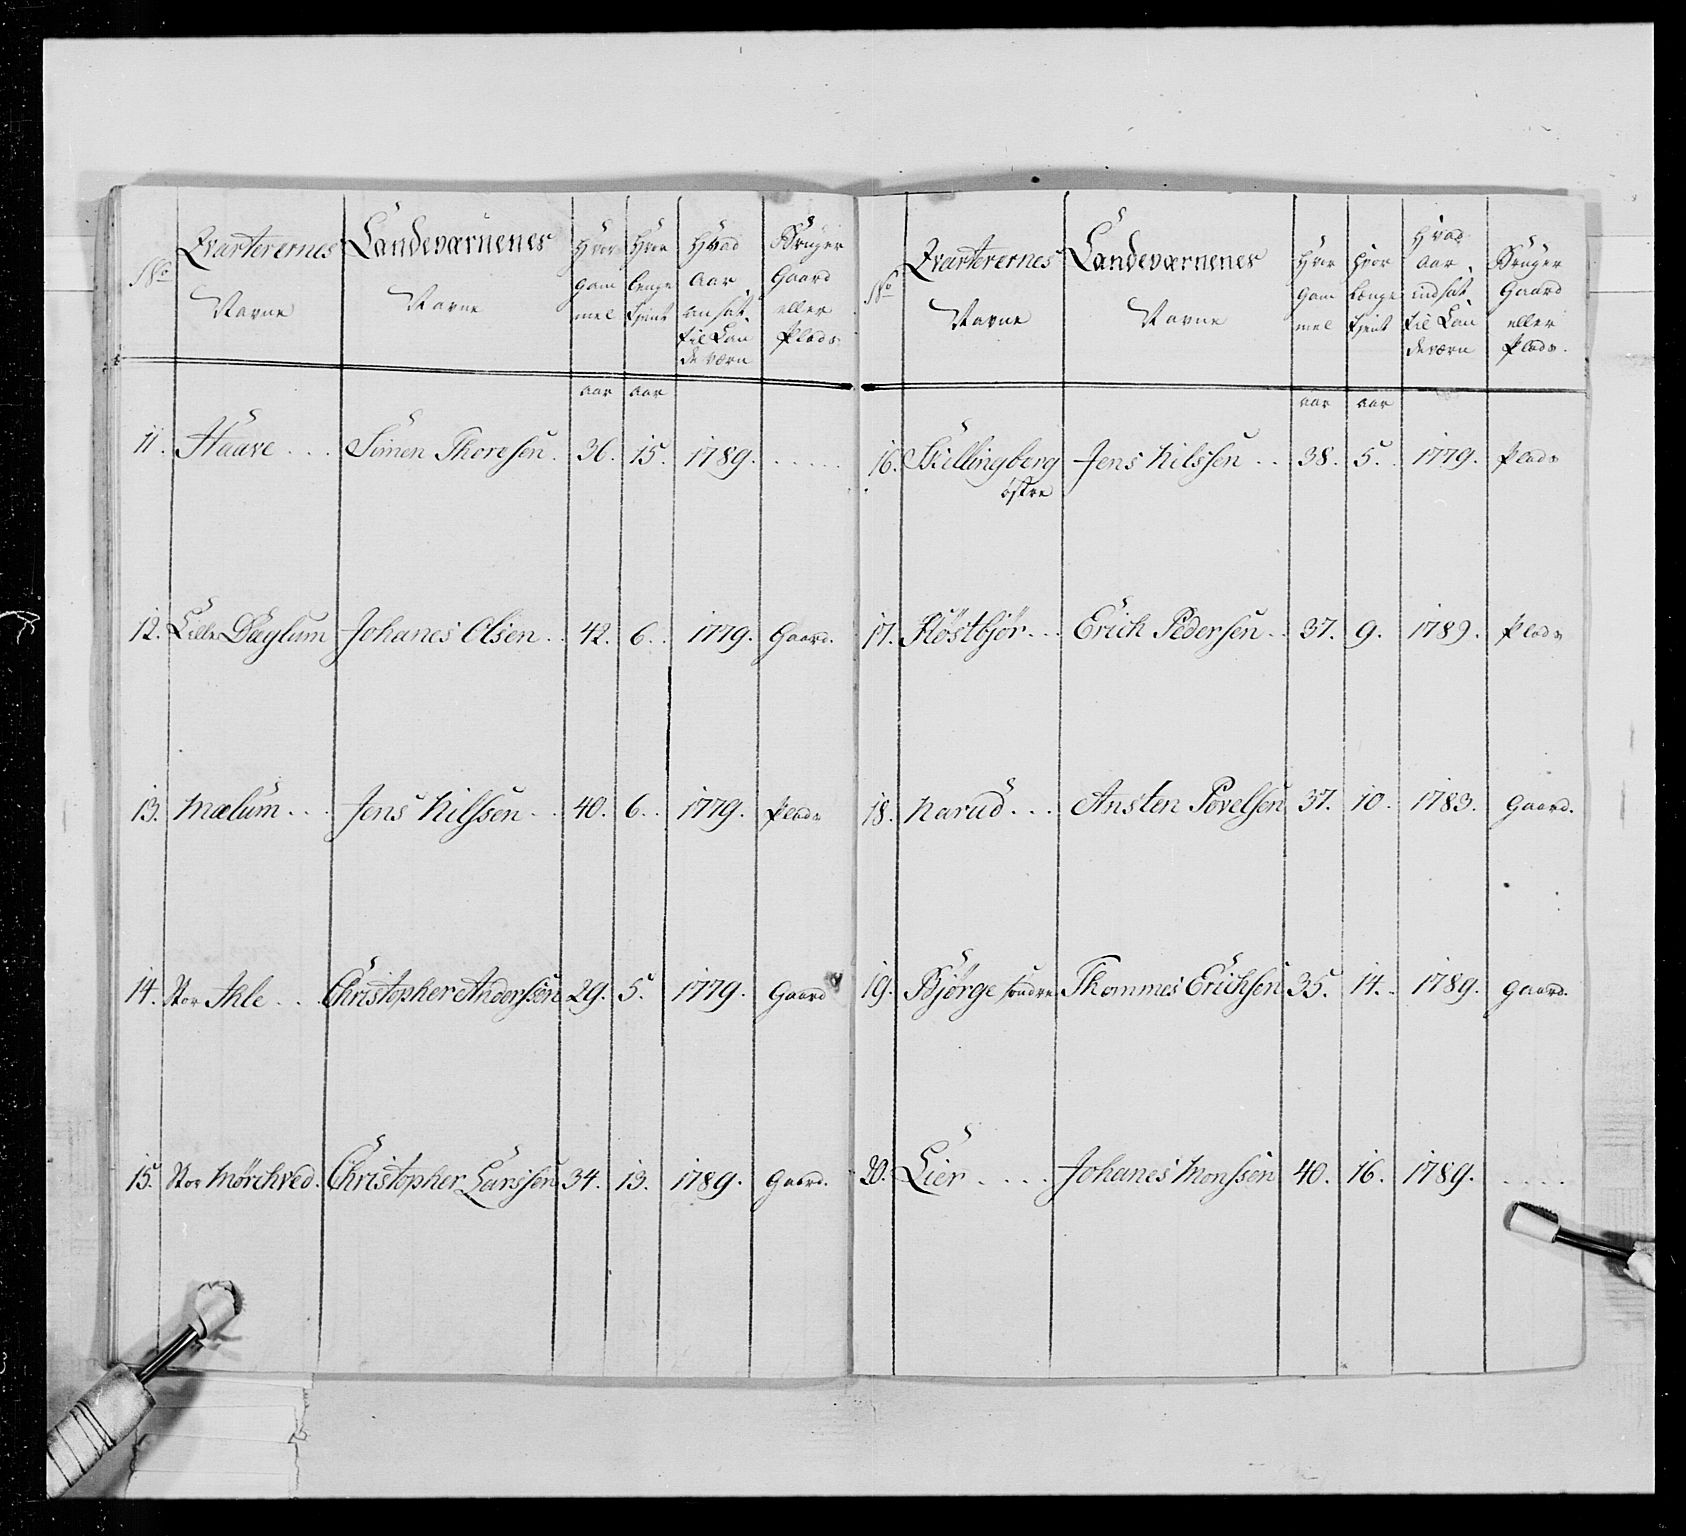 No
Qvarterernes Navne
Landeværnenes Navne
Hvor gam mel
Hvor lenge tjent
Hvad Aar ansat til Lan deværn
Bruger Gaard eller Plads
aar aar
11. Haave . . . Simen Thoresen. 36. 15. 1789. . . . . .
12. Lille Dæhlum Johanes Olsen. . 42. 6. . 1779. Gaard.
13. Mælum . . . Jens Nilssen . . 40. 6. . 1779. Plads
14. Stor Ihle . . . Christopher Anderssen 29. 5. 1779. Gaard
15. Stor Mörchved. Christopher Larssen 34. 13. 1789. Gaard.
No
Qvarterernes Navne
Landeværnenes Navne
Hvor Gam mel
Hvor Længe tjent
Hvad Aar indsat til Lan deværn
Bruger Gaard eller Plads.
aar aar
16. Skillingberg Jens Nilssen . . 38. 5. . 1779. Plads
östre
17. Röstbjör. . . Erich Pedersen . . 37. 9. 1789. Plads
18. Narud . . . Ansten Povelsen 37. 10. 1783. Gaard.
19. Bjørge söndre Thommes Erichsen 35. 14. . 1789. Gaard.
20. Lier . . . . Johanes Monssen 40. 16. 1789. . . . .